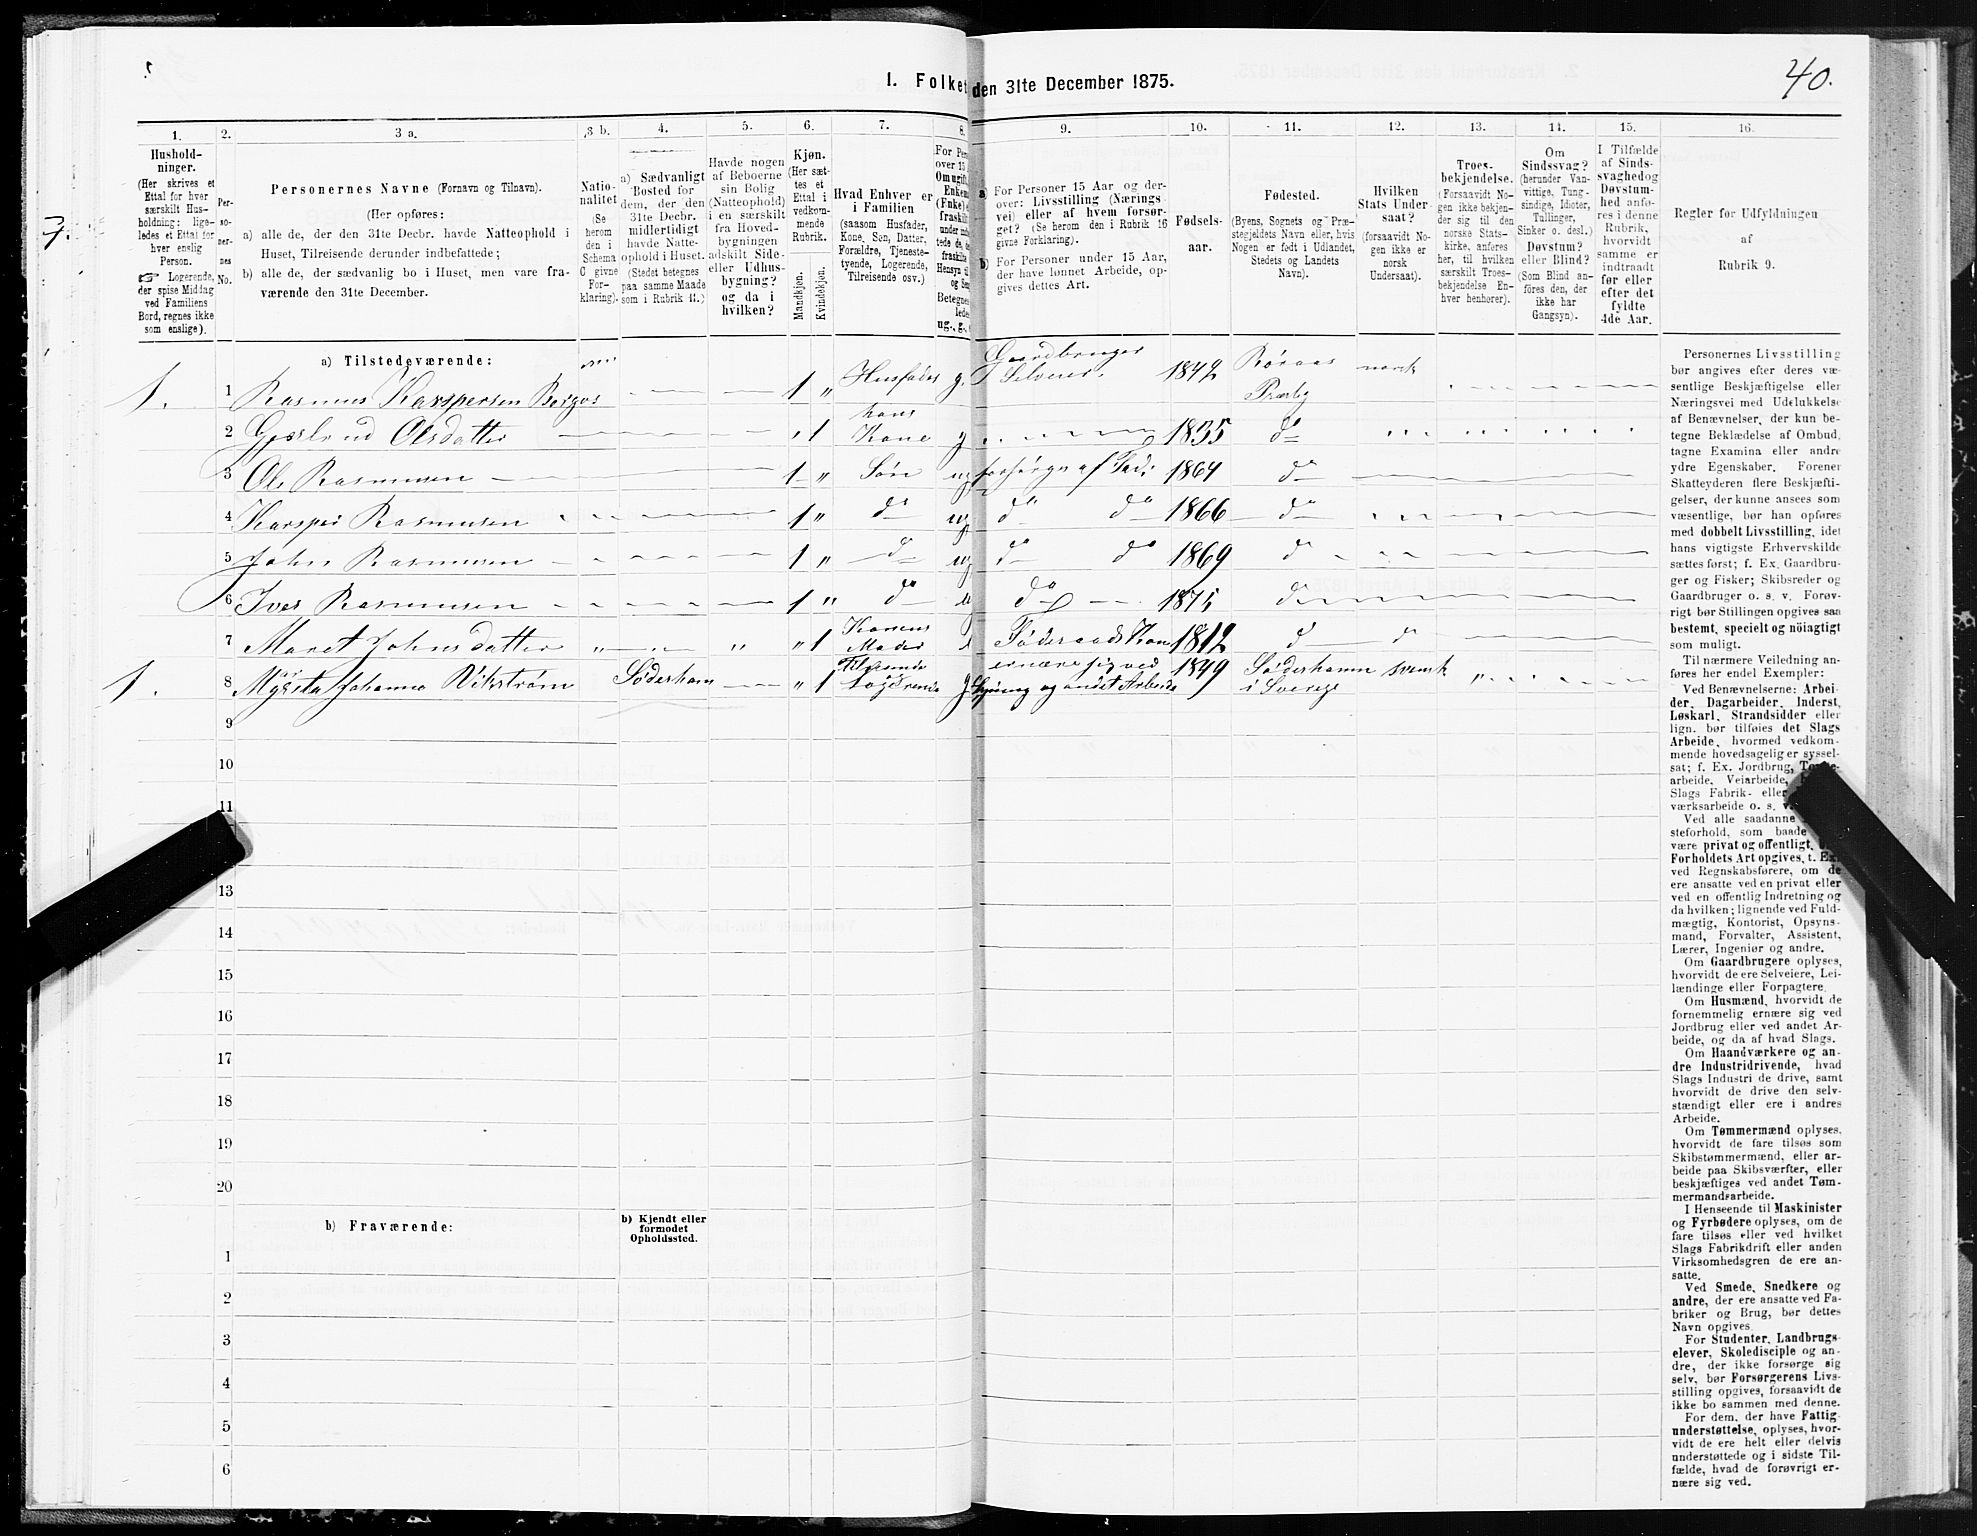 I. Folket
den 31te December 1875.
40.
7.
1.
2.
3 a.
3 b.
4.
5.
6.
7.
8.
9.
10.
11.
12.
13.
14.
15.
16.
Hushold-
ninger.
(Her skrives et
Ettal for hver
særskilt Hus-
holdning; lige-
ledes et Ettal for
hver enslig
Person.
☞ Logerende,
der spise Middag
ved Familiens
Bord, regnes ikke
som enslige).
Per-
so-
ner-
nes
No.
Personernes Navne (Fornavn og Tilnavn).
(Her opføres:
a) alle de, der den 31te Decbr. havde Natteophold i
Huset, Tilreisende derunder indbefattede;
b) alle de, der sædvanlig bo i Huset, men vare fra-
værende den 31te December.
Natio-
nalitet
(Se
herom
den i
Schema
C givne
For-
klaring).
a) Sædvanligt
Bosted for
dem, der den
31te Decbr.
midlertidigt
havde Natte-
ophold i Huset.
(Stedet betegnes
paa samme Maade
som i Rubrik 11.)
Havde nogen
af Beboerne
sin Bolig
(Natteophold)
i en særskilt
fra Hoved-
bygningen
adskilt Side-
eller Udhus-
bygning?
og da i
hvilken?
Kjøn.
(Her sæt-
tes et
Ettal i
vedkom-
mende
Rubrik.
Mandkjøn.
Kvindekjøn.
Hvad Enhver er
i Familien
(saasom Husfader,
Kone, Søn, Datter,
Forældre, Tjeneste-
tyende, Logerende,
Tilreisende osv.)
For Per
over 15
Om ugift
Enkem
(Enke)
fraskil
under
tede de,
fraskil
Hensyn til
og Sen
Betegnes
lede
ug., g.,
a) For Personer 15 Aar og der-
over: Livsstilling (Nærings-
vei) eller af hvem forsør-
get? (Se herom den i Rubrik 16
givne Forklaring).
b) For Personer under 15 Aar,
der have lønnet Arbeide, op-
gives dettes Art.
Fødsels-
aar.
Fødested.
(Byens, Sognets og Præ-
stegjeldets Navn eller, hvis
Nogen er født i Udlandet,
Stedets og Landets
Navn).
Hvilken
Stats Under-
saat?
(forsaavidt No-
gen ikke er
norsk
Undersaat).
Troes-
bekjendelse.
(Forsaavidt No-
gen ikke bekjen-
der sig til den
norske Stats-
kirke, anføres
her, til hvilken
særskilt Troes-
bekjendelse En-
hver henhører).
Om
Sindssvag?
(herunder Van-
vittige, Tung-
sindige, Idioter,
Tullinger,
Sinker o. desl.)
Døvstum?
eller Blind?
(Som Blind an-
føres den, der
ikke har
Gangsyn).
I Tilfælde
af Sinds-
svaghed og
Døvstum-
hed anfø-
res i denne
Rubrik,
hvorvidt
samme er
indtraadt
før eller
efter det
fyldte
4de Aar.
Regler for Udfyldningen
af
Rubrik 9.
a) Tilstedeværende:
1. 1 Rasmus Karspersen Borgos 1 „ Husfader g. Gaardbruger Selveier. 1842 Røraas Præstg norsk
2 Gjertrud Olsdatter „ 1 hans Kone g 1835 do
3 Ole Rasmusen 1 „ Søn ug forsørges af Fad: 1864 do
4 Karsper Rasmusen 1 „ do ug do do 1866 do
5 John Rasmusen 1 „ do ug do do 1869 do
6 Iver Rasmusen 1 „ do do 1875 do
7 Maret Johnsdatter „ 1 Konens Moder Føderaads Kone 1812 do do
1. 8 Johanna Vikstrøm Søderham „ 1 Logerende g ernære sig ved Syning og andet Arbeide 1849 Søderhamn i Sverige svensk
9
10
11
13
14
15
16
17
18
19
20
b) Fraværende:
b) Kjendt eller
formodet
Opholdssted.
1
2
3
4
5
6
Personernes Livsstilling
bør angives efter deres væ-
sentlige Beskjæftigelse eller
Næringsvei med Udelukkelse
af Benævnelser, der kun be-
tegne Beklædelse af Ombud,
tagne Examina eller andre
ydre Egenskaber. Forener
Skatteyderen flere Beskjæfti-
gelser, der kunne ansees som
væsentlige, bør han opføres
med dobbelt Livsstilling, idet
hans vigtigste Erhvervskilde
sættes først; f. Ex. Gaardbru-
ger og Fisker; Skibsreder og
Gaardbruger o. s. v. Forøv-
rigt bør Stillingen opgives saa
bestemt, specielt og nöiagtigt
som muligt.
Til nærmere Veiledning an-
føres her endel Exempler:
Ved Benævnelserne: Arbei-
der, Dagarbeider, Inderst,
Løskarl, Strandsidder eller
lign. bør tilføies det Slags
Arbeide, hvormed vedkom-
mende hovedsagelig er syssel-
sat; f. Ex. Jordbrug, Tomte-
arbeide, Veiarbeide,
Slags Fabrik- eller
værksarbeide o. s. v.
Ved alle saadanne
steforhold, som baade
være privat og offentligt,
Forholdets Art opgives, t. Ex.
ved Regnskabsførere, om de
ere ansatte ved en privat eller
ved en offentlig Indretning og
da hvilken; lignende ved Fuld-
mægtig, Kontorist, Opsyns-
mand, Forvalter, Assistent,
Lærer, Ingeniør og andre.
Om Gaardbrugere oplyses,
hvorvidt de ere Selveiere, Lei-
lændinge eller Forpagtere.
Om Husmænd, hvorvidt de
fornemmelig ernære sig ved
Jordbrug eller ved andet Ar-
beide, og da af hvad Slags.
Om Haandværkere og an-
dre Industridrivende, hvad
Slags Industri de drive, samt
hvorvidt de drive den selv-
stændigt eller ere i andres
Arbeide.
Om Tømmermænd oplyses,
hvorvidt de fare tilsøs som
Skibstømmermænd, eller ar-
beide paa Skibsværfter, eller
beskjæftiges ved andet Tøm-
mermandsarbeide.
I Henseende til Maskinister
og Fyrbødere oplyses, om de
fare tilsøs eller ved hvilket
Slags Fabrikdrift eller anden
Virksomhedsgren de ere an-
satte.
Ved Smede, Snedkere og
andre, der ere ansatte ved Fa-
briker og Brug, bør dettes
Navn opgives.
For Studenter, Landbrugs-
elever, Skoledisciple og an-
dre, der ikke forsørge sig
selv, bør Forsørgerens Livs-
stilling opgives, forsaavidt de
ikke bo sammen med denne.
For dem, der have Fattig-
understøttelse, oplyses, hvor-
vidt de ere helt eller delvis
understøttede og i sidste Til-
fælde, hvad de forøvrigt er-
nære sig ved.